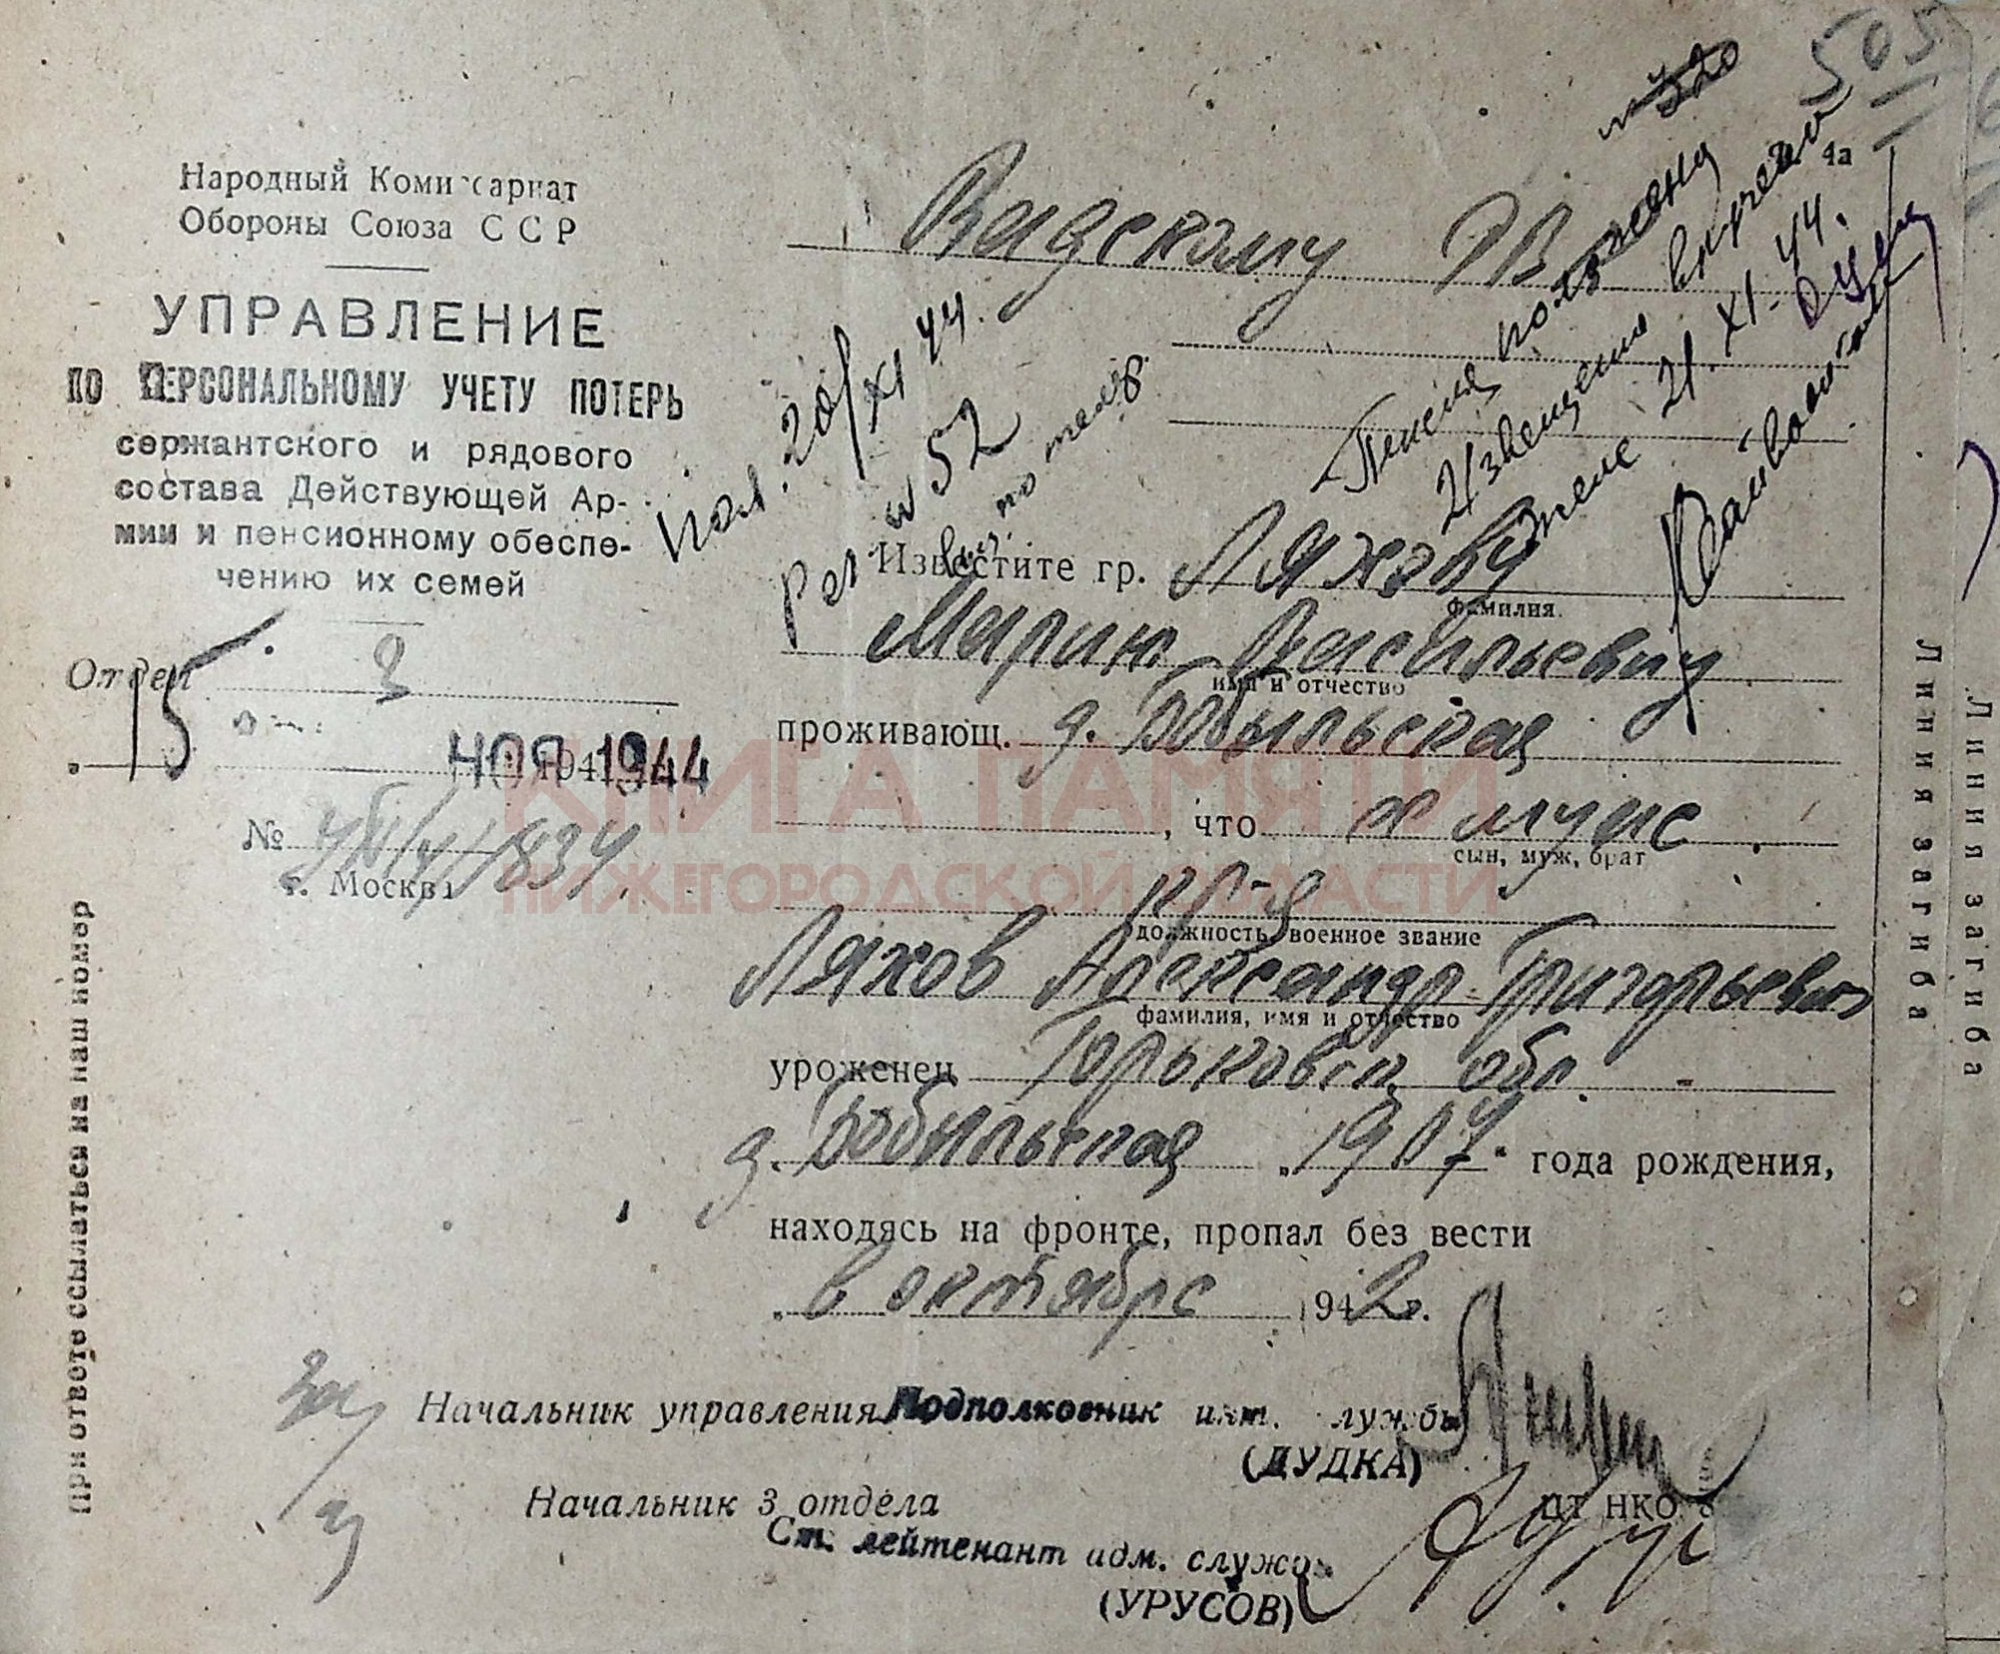 505
4а
Народный Комиссариат
Обороны Союза ССР
УПРАВЛЕНИЕ
ПО ПЕРСОНАЛЬНОМУ УЧЕТУ ПОТЕРЬ
сержантского и рядового
состава Действующей Ар-
мии и пенсионному обеспе-
чению их семей
Отдел 3
15 НОЯ 1944
№ 834
г. Москва
При ответе ссылаться на наш номер
Вадскому РВ
Пол. 20/XI 44.
№ 52
Пенсия
Извещение вручено
21.XI-44.
Известите гр. Ляхову
фамилия
Марию Васильевну
имя и отчество
проживающ. д. Бобыльская
, что ее муж
сын, муж, брат
кр-ц
должность, военное звание
Ляхов Александр Григорьевич
фамилия, имя и отчество
уроженец Горьковск. обл.
д. Бобыльская 1907 года рождения,
находясь на фронте, пропал без вести
в октябре 1942 г.
Начальник управления Подполковник инт. службы
(ДУДКА)
Начальник 3 отдела
Ст. лейтенант адм. службы
(УРУСОВ)
ЦТ НКО
Линия загиба
Линия загиба
КНИГА ПАМЯТИ
НИЖЕГОРОДСКОЙ ОБЛАСТИ